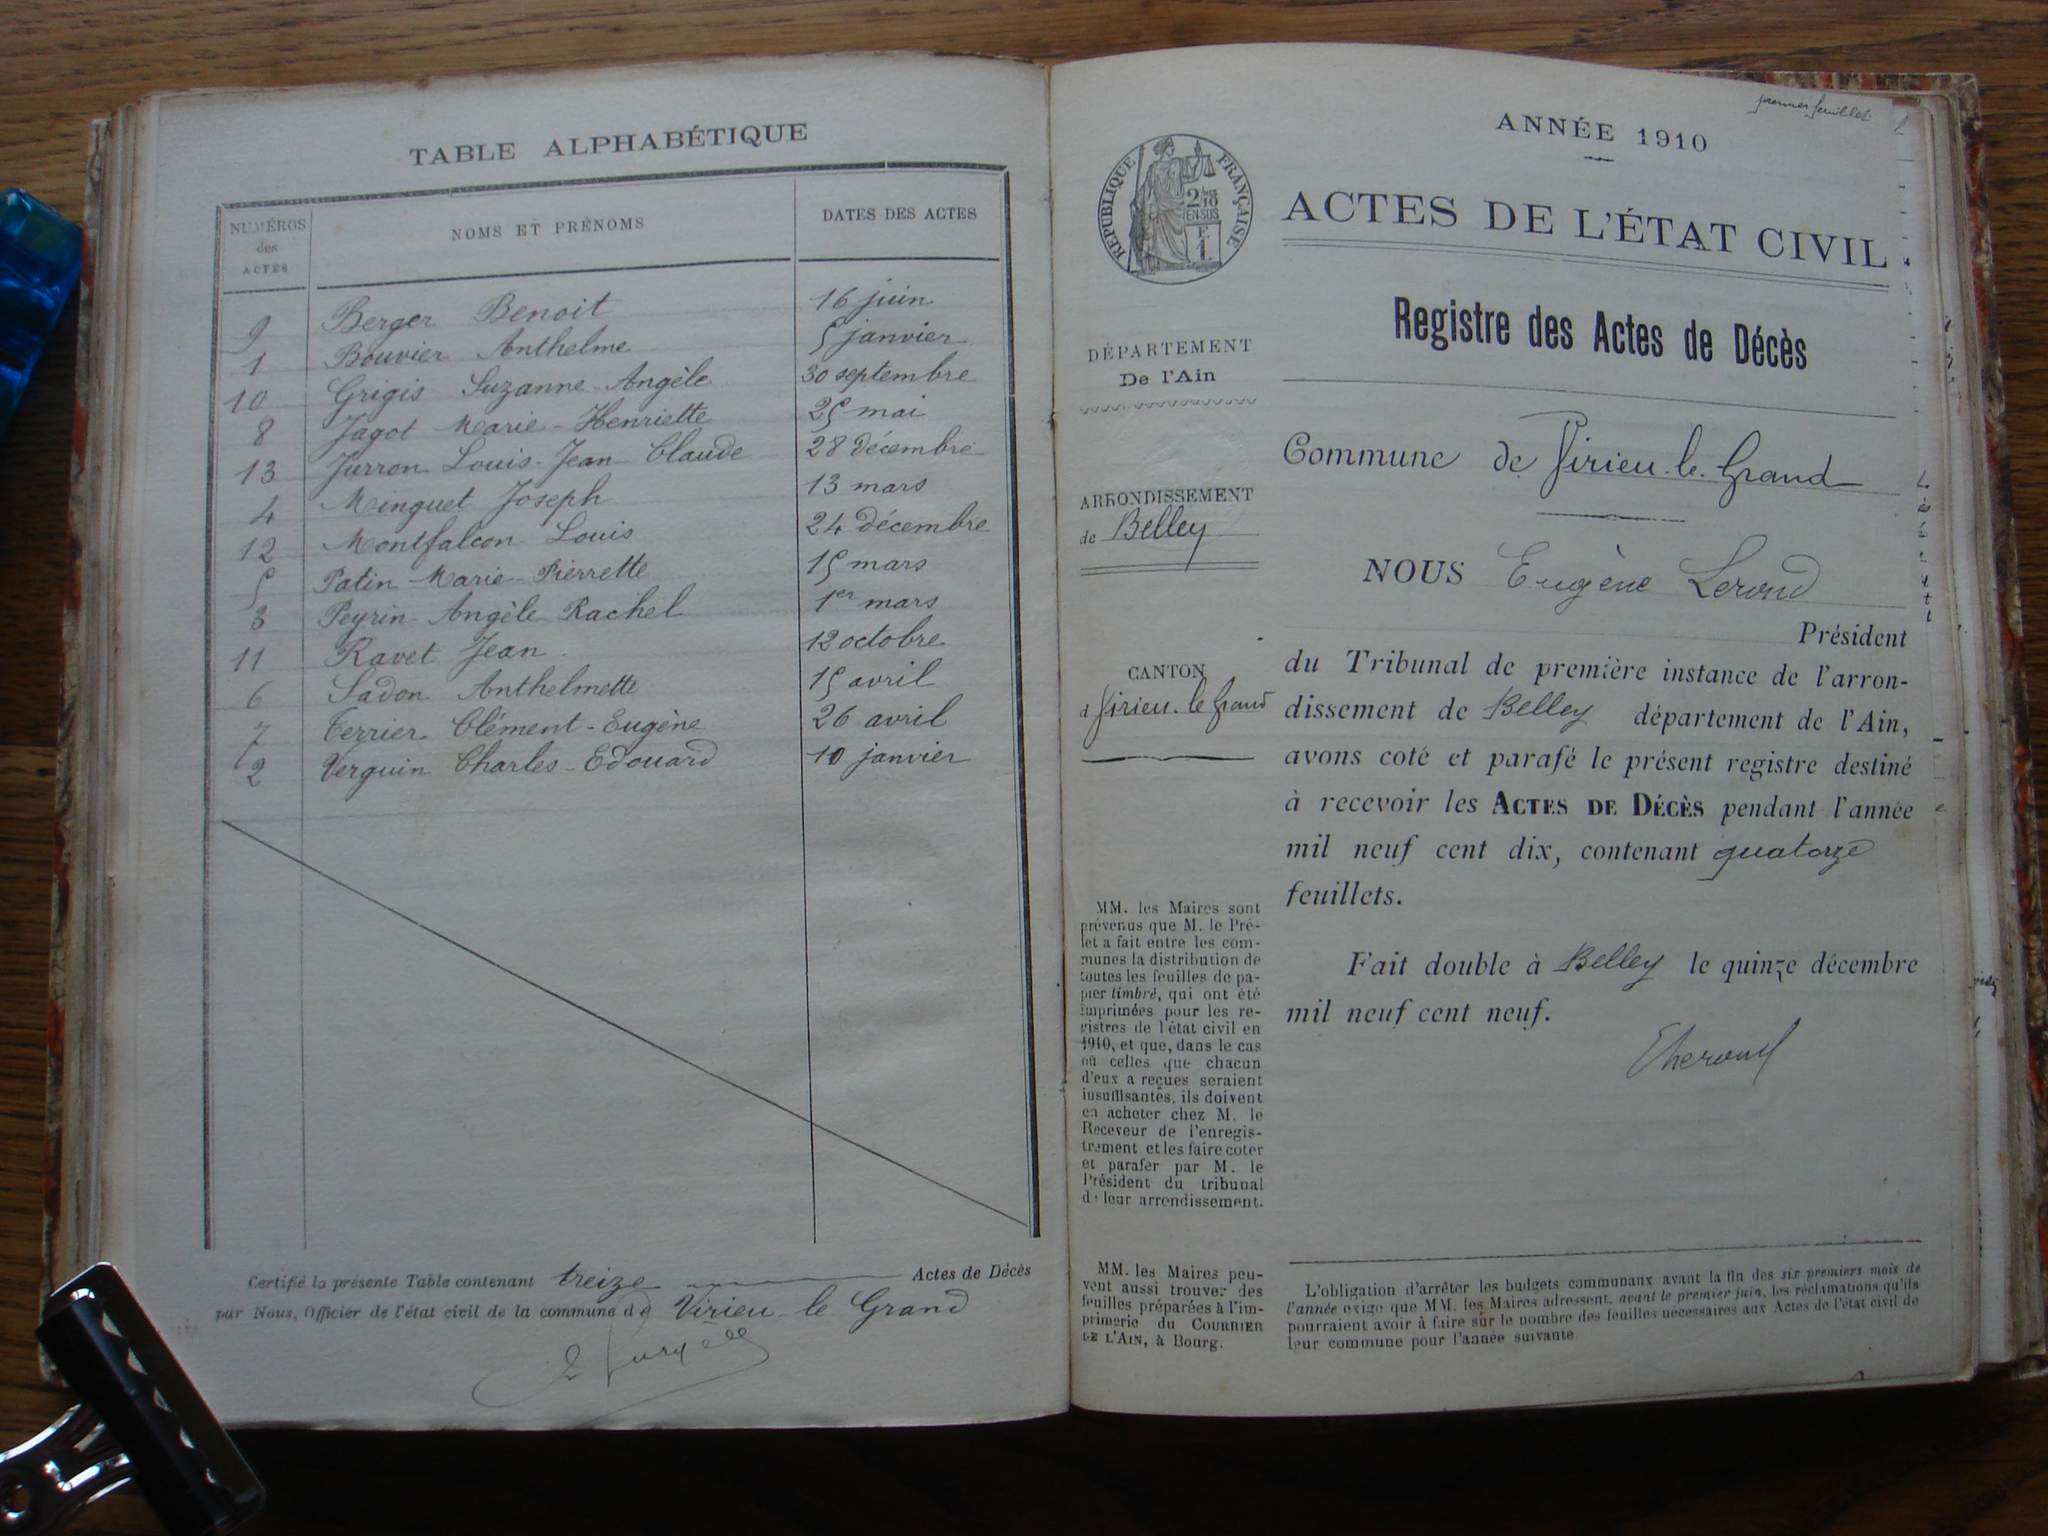 TABLE ALPHABÉTIQUE
NUMÉROS des ACTES NOMS ET PRÉNOMS DATES DES ACTES
9 Berger Benoit 16 juin
1 Bouvier Anthelme 5 janvier
10 Grigis Suzanne Angèle 30 septembre
8 Jagot Marie-Henriette 25 mai
13 Jurron Louis-Jean Claude 28 décembre
4 Minguet Joseph 13 mars
12 Montfalcon Louis 24 décembre
5 Patin Marie-Pierrette 15 mars
3 Peyrin-Angèle Rachel 1er mars
11 Ravet Jean 12 octobre
6 Sadon Anthelmette 15 avril
7 Terrier Clément-Eugène 26 avril
2 Verguin Charles-Edouard 10 janvier
Certifié la présente Table contenant treize Actes de Décès
par Nous, Officier de l'état civil de la commune de Virieu-le-Grand
premier feuillet
ANNÉE 1910
RÉPUBLIQUE FRANÇAISE
2/10
EN SUS
F.
1.
ACTES DE L'ÉTAT CIVIL
Registre des Actes de Décès
DÉPARTEMENT
De l'Ain
ARRONDISSEMENT
de Belley
CANTON
d Virieu-le-Grand
MM. les Maires sont
prévenus que M. le Pré-
fet a fait entre les com-
munes la distribution de
toutes les feuilles de pa-
pier timbré, qui ont été
imprimées pour les re-
gistres de l'état civil en
1910, et que, dans le cas
où celles que chacun
d'eux a reçues seraient
insuffisantes, ils doivent
en acheter chez M. le
Receveur de l'enregis-
trement et les faire coter
et parafer par M. le
Président du tribunal
de leur arrondissement.
MM. les Maires peu-
vent aussi trouver des
feuilles préparées à l'im-
primerie du COURRIER
DE L'AIN, à Bourg.
Commune de Virieu-le-Grand
NOUS Eugène Lerond
Président
du Tribunal de première instance de l'arron-
dissement de Belley département de l'Ain,
avons coté et parafé le présent registre destiné
à recevoir les ACTES DE DÉCÈS pendant l'année
mil neuf cent dix, contenant quatorze
feuillets.
Fait double à Belley le quinze décembre
mil neuf cent neuf.
L'obligation d'arrêter les budgets communaux avant la fin des six premiers mois de
l'année exige que MM. les Maires adressent, avant le premier juin, les réclamations qu'ils
pourraient avoir à faire sur le nombre des feuilles nécessaires aux Actes de l'état civil de
leur commune pour l'année suivante